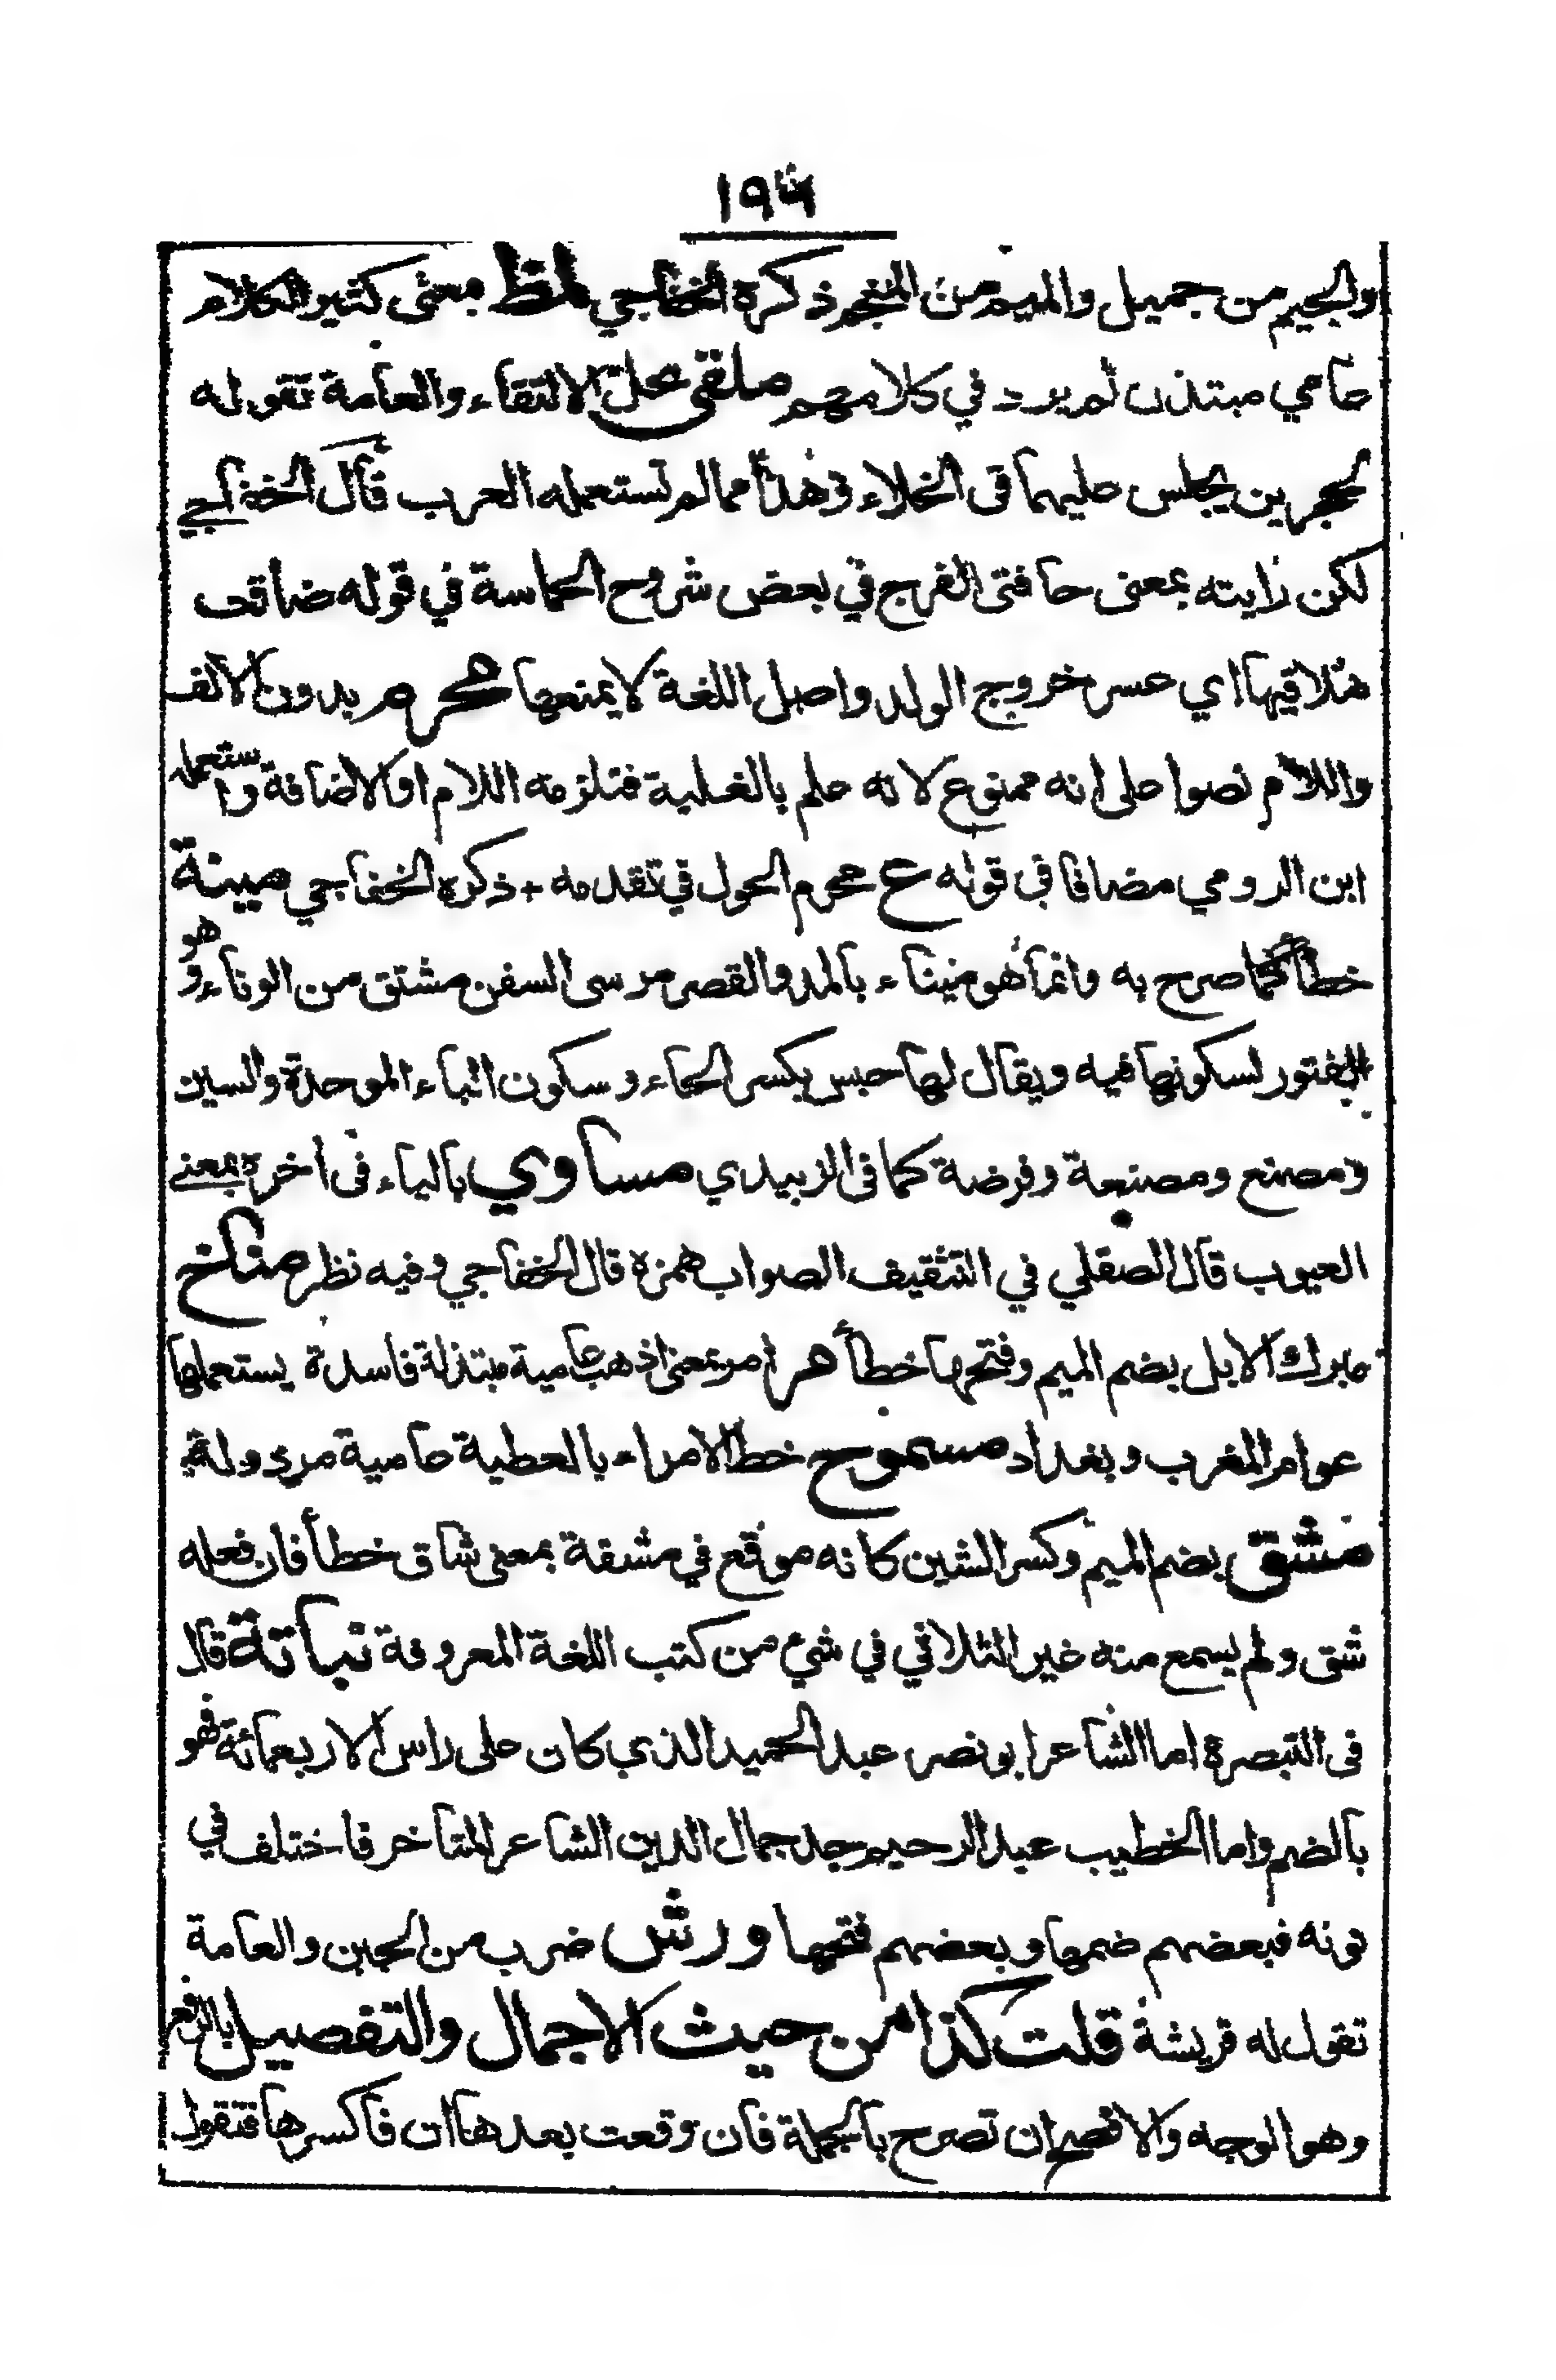 ١٩٦
والجيم من جميل والميم من المنجم ذكره الخفاجي ملظ بمعنى كثير الكلام
عامي مبتذل لم يرد في كلامهم ملقى محل الالتقاء والعامة تقوله
لحجرين يجلس عليهما في الخلاء وهذا مما لم تستعمله العرب قال الخفاجي
لكن رايته بمعنى حافتى الفرج في بعض شروح الحماسة في قوله ضاقت
ملاقيها اي عسر خروج الولد واصل اللغة لا يمنعها محرم بدون الالف
واللام نصوا على انه ممنوع لانه علم بالغلبة فتلزمه اللام او الاضافة واستعمله
ابن الرومي مضافا في قوله ع محرم الحول في تقدمه + ذكره الخفاجي مينة
خطأ كما صرح به وانما هو ميناء بالمد والقصر مرسى السفن مشتق من الوناء وهو
الفتور لسكونها فيه ويقال لها حبس بكسر الحاء وسكون الباء الموحدة والسين
ومصنع ومصنعة وفرضة كما في الزبيدي مساوي بالياء في اخره بمعنى
العيوب قال الصقلي في التثقيف الصواب همزه قال الخفاجي وفيه نظر مناخ
مبرك الابل بضم الميم وفتحها خطأ هر امر بمعنى اذهب عامية مبتذلة فاسدة يستعملها
عوام المغرب وبغداد مسموح خط الامراء بالعطية عامية مردولة
مشق بضم الميم وكسر الشين كانه موقع في مشقة بمعنى شاق خطأ فان فعله
شق ولم يسمع منه غير الثلاثي في شيء من كتب اللغة المعروفة نباتة قال
في التبصرة اما الشاعر ابو نصر عبد الحميد الذي كان على راس الاربعمائة فهو
بالضم واما الخطيب عبد الرحيم جد جمال الدين الشاعر المتاخر فاختلف في
نونه فبعضهم ضمها وبعضهم فتحها ورش ضرب من الجبن والعامة
تقول له قريشة قلت كذا من حيث الاجمال والتفصيل بالرفع
وهو الوجه والافصح ان تصرح بالجملة فان وقعت بعدها ان فاكسرها فتقول